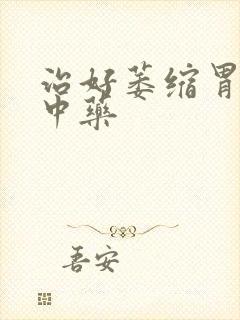 治好萎缩胃
中药
吾安